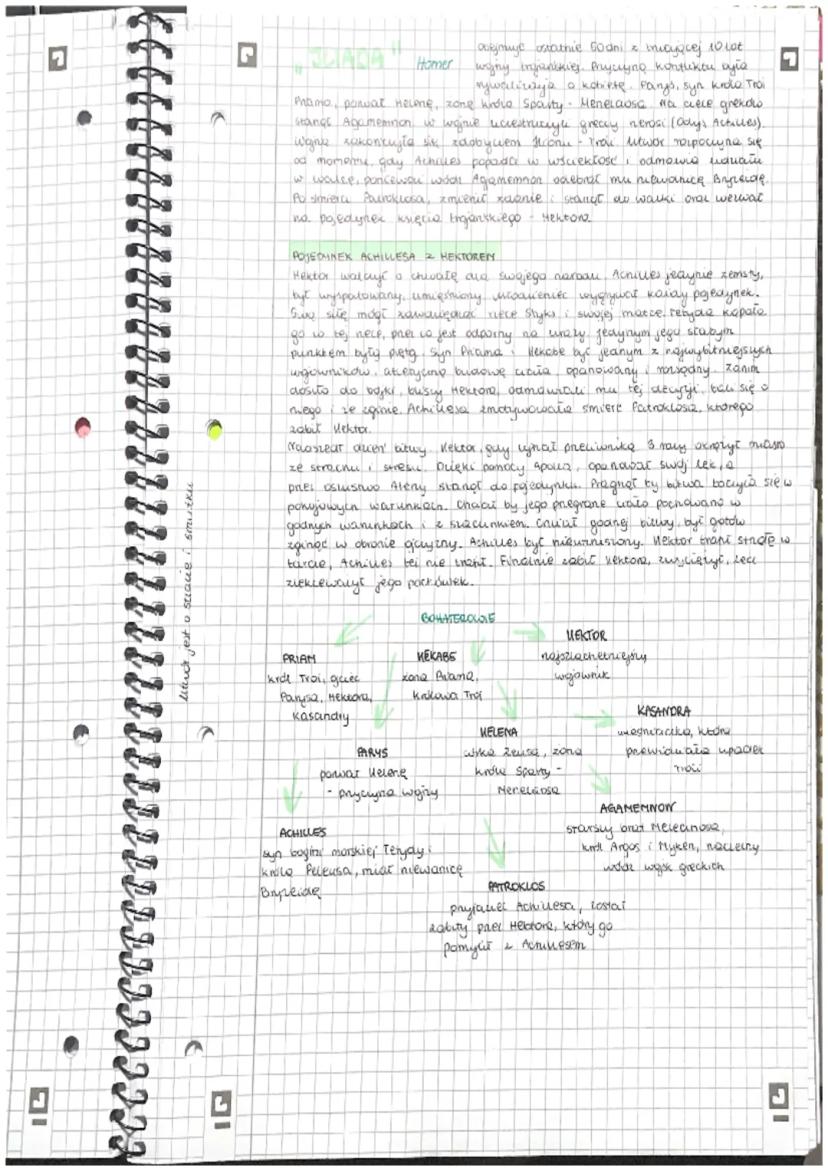 "ILIADA" Homer
obejmuje ostatnie 50 dni z trwającej 10 lat
wojny trojańskiej. Przyczyną konfliktu była
rywalizacja o kobietę. Parys, syn króla Troi
Priama, porwał Helenę, żonę króla Sparty - Menelaosa. Na czele greków
stanął Agamemnon. W wojnie uczestniczyli greccy herosi (Odys, Achilles).
Wojna zakończyła się zdobyciem Ilionu - Troi. Utwór rozpoczyna się
od momentu, gdy Achilles popada w wściekłość i odmawia udziału
w walce, ponieważ wódz Agamemnon odebrał mu niewolnicę Bryzeidę.
Po śmierci Patroklosa, zmienił zdanie i stanął do walki oraz wezwał
na pojedynek księcia trojańskiego - Hektora.
POJEDYNEK ACHILLESA Z HEKTOREM
Hektor walczył o chwałę dla swojego narodu. Achilles jedynie zemsty,
był wysportowany, umięśniony, młodzieniec wygrywał każdy pojedynek.
Swą siłę mógł zawdzięczać rzece Styks i swojej matce. Tetyda kąpała
go w tej rzece, przez co jest odporny na urazy. Jedynym jego słabym
punktem były pięty. Syn Priama i Hekabe był jednym z najwybitniejszych
wojowników, atletyczna budowa ciała, opanowany i rozsądny. Zanim
doszło do bójki, bliscy Hektora, odmawiali mu tej decyzji, bali się o
niego i że zginie. Achillesa zmotywowała śmierć Patroklosa, którego
zabił Hektor.
Nadszedł dzień bitwy. Hektor, gdy ujrzał przeciwnika 3 razy okrążył miasto
ze strachu i stresu. Dzięki pomocy Apolla, opanował swój lęk, a
przez oszustwo Ateny stanął do pojedynku. Pragnął by bitwa toczyła się w
pokojowych warunkach. Chciał by jego przegrane ciało pochowano w
godnych warunkach i z szacunkiem. Chciał godnej bitwy, był gotów
zginąć w obronie ojczyzny. Achilles był niewzruszony. Hektor trafił strzałę w
tarczę, Achilles też nie trafił. Finalnie zabił Hektora, zwyciężył, lecz
zlekceważył jego pochówek.
Utwór jest o stracie i smutku
BOHATEROWIE
HEKTOR
najszlachetniejszy
wojownik
PRIAM
król Troi, ojciec
Parysa, Hektora,
Kasandry
HEKABE
żona Priama,
królowa Troi
KASANDRA
wieszczka, która
przewidziała upadek
Troi
HELENA
córka Zeusa, żona
króla Sparty -
Menelaosa
PARYS
porwał Helenę
- przyczyna wojny
AGAMEMNON
starszy brat Menelaosa,
król Argos i Myken, naczelny
wódz wojsk greckich
ACHILLES
syn bogini morskiej Tetydy i
króla Peleusa, miał niewolnicę
Bryzeidę
PATROKLOS
przyjaciel Achillesa, został
zabity przez Hektora, który go
pomylił z Achillesem